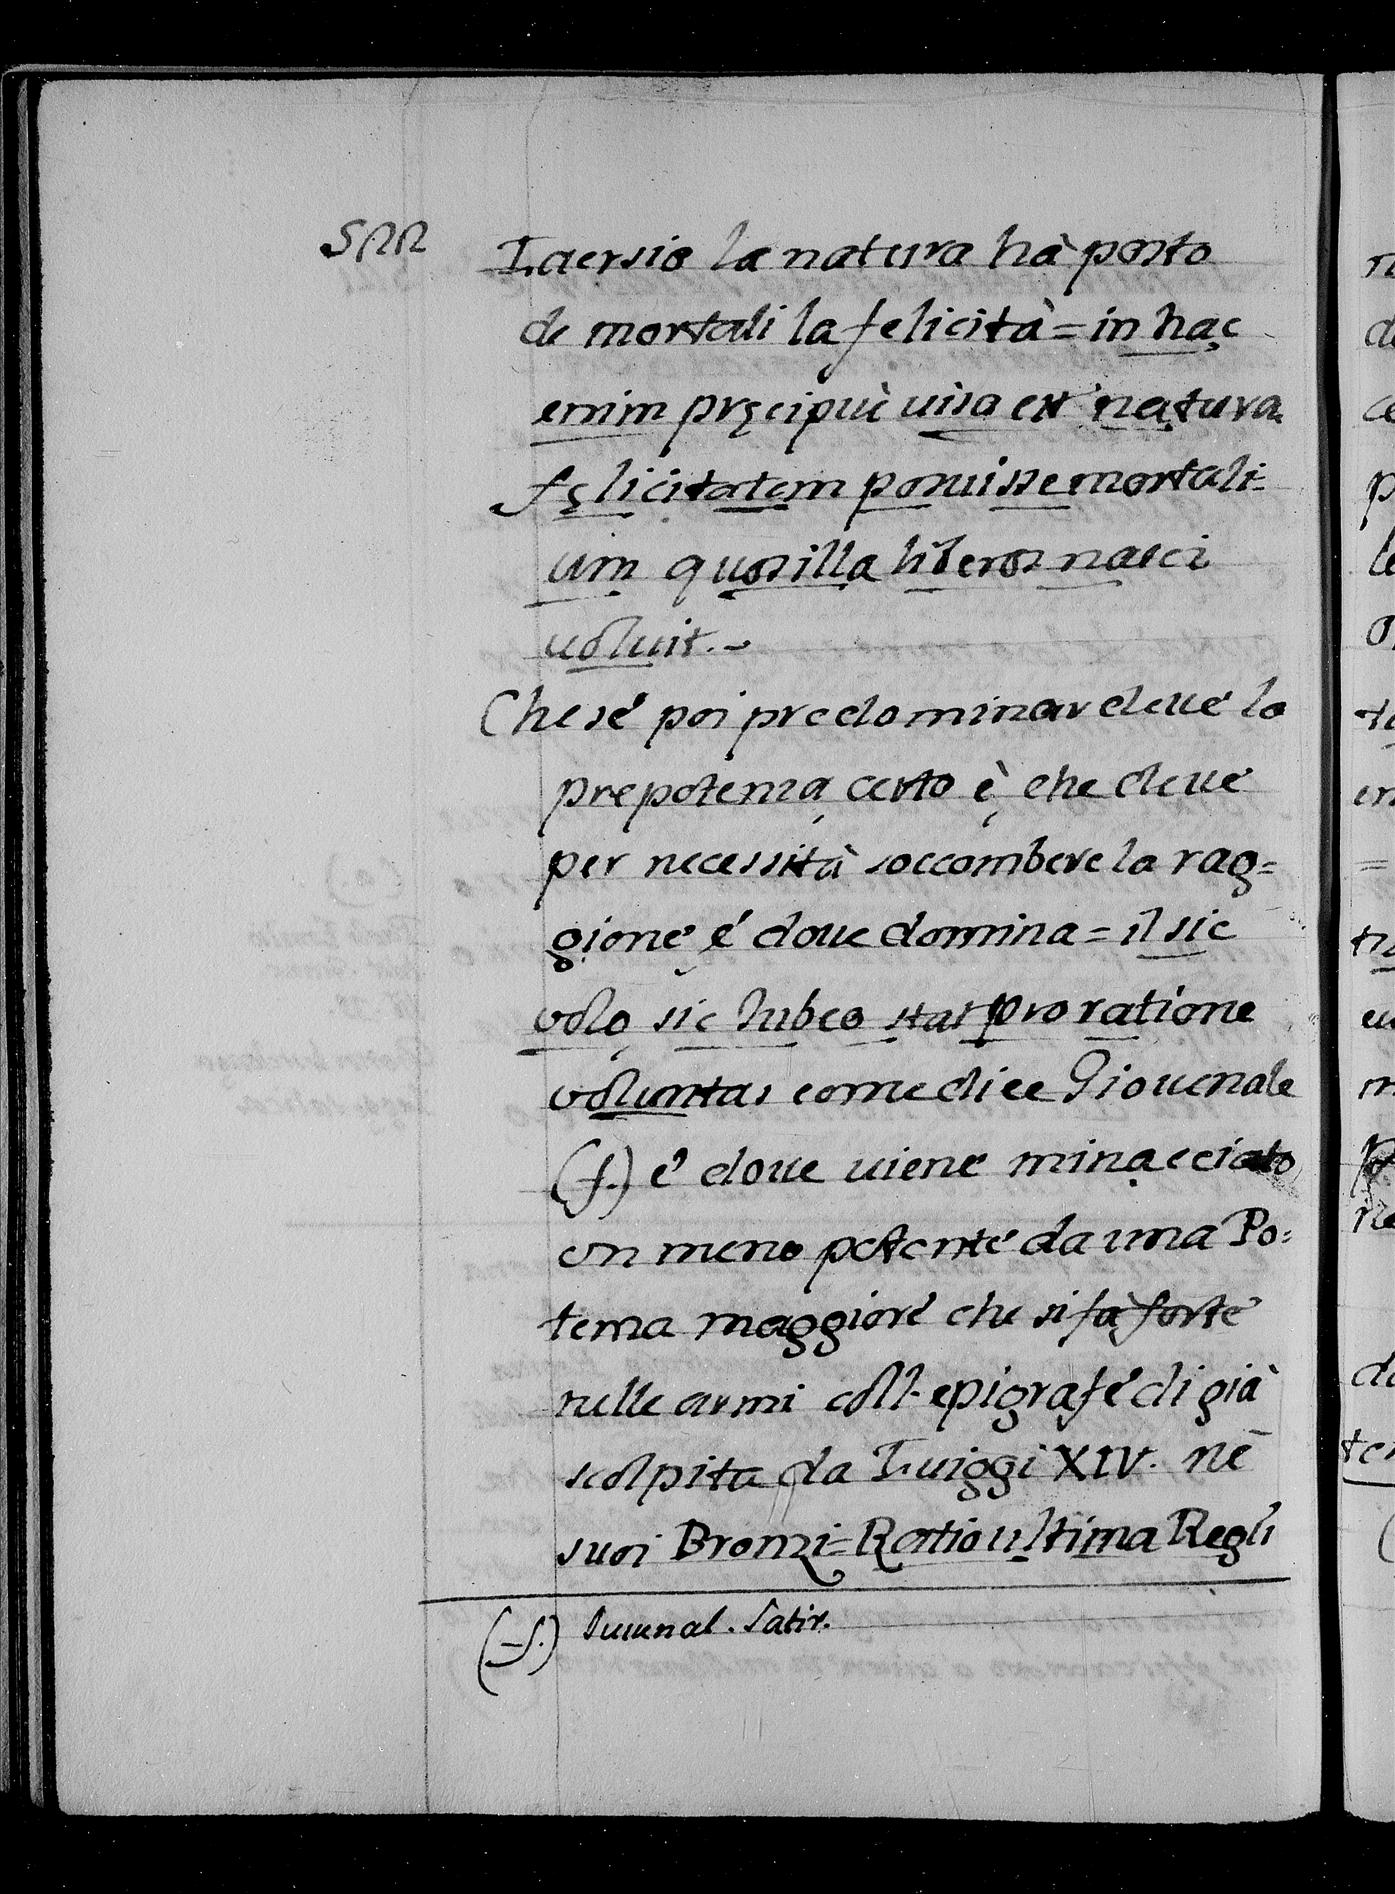 522
Laersio la natura hà posto
de mortali la felicità = in hac
enim pręcipuè uita ex natura
felicitatem posuisse mortali=
um quos illa liberos nasci
uoluit.-
Che sé poi predominar deué la
prepotenza certo è che deué
per necessità soccombere la rag=
gioné é doue domina = il sic
volo sic Iubeo stat pro ratione
voluntas come dice Giouenale
(f.) é doue uiené minacciato
un meno potenté da una Po=
tenza maggioré che si fà forté
nelle armi coll. epigrafé di già
scolpita da Luiggi XIV. né
suoi Bronzi = Ratio ultima Regū
(f.) Iuuenal. Satir.